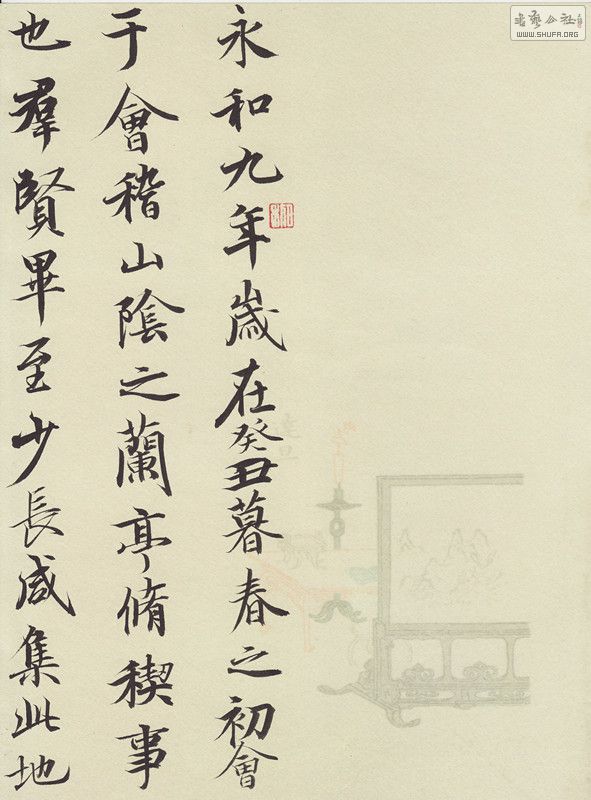 永和九年歲在癸丑暮春之初會
于會稽山陰之蘭亭脩稧事
也羣賢畢至少長咸集此地
WWW.SHUFA.ORG